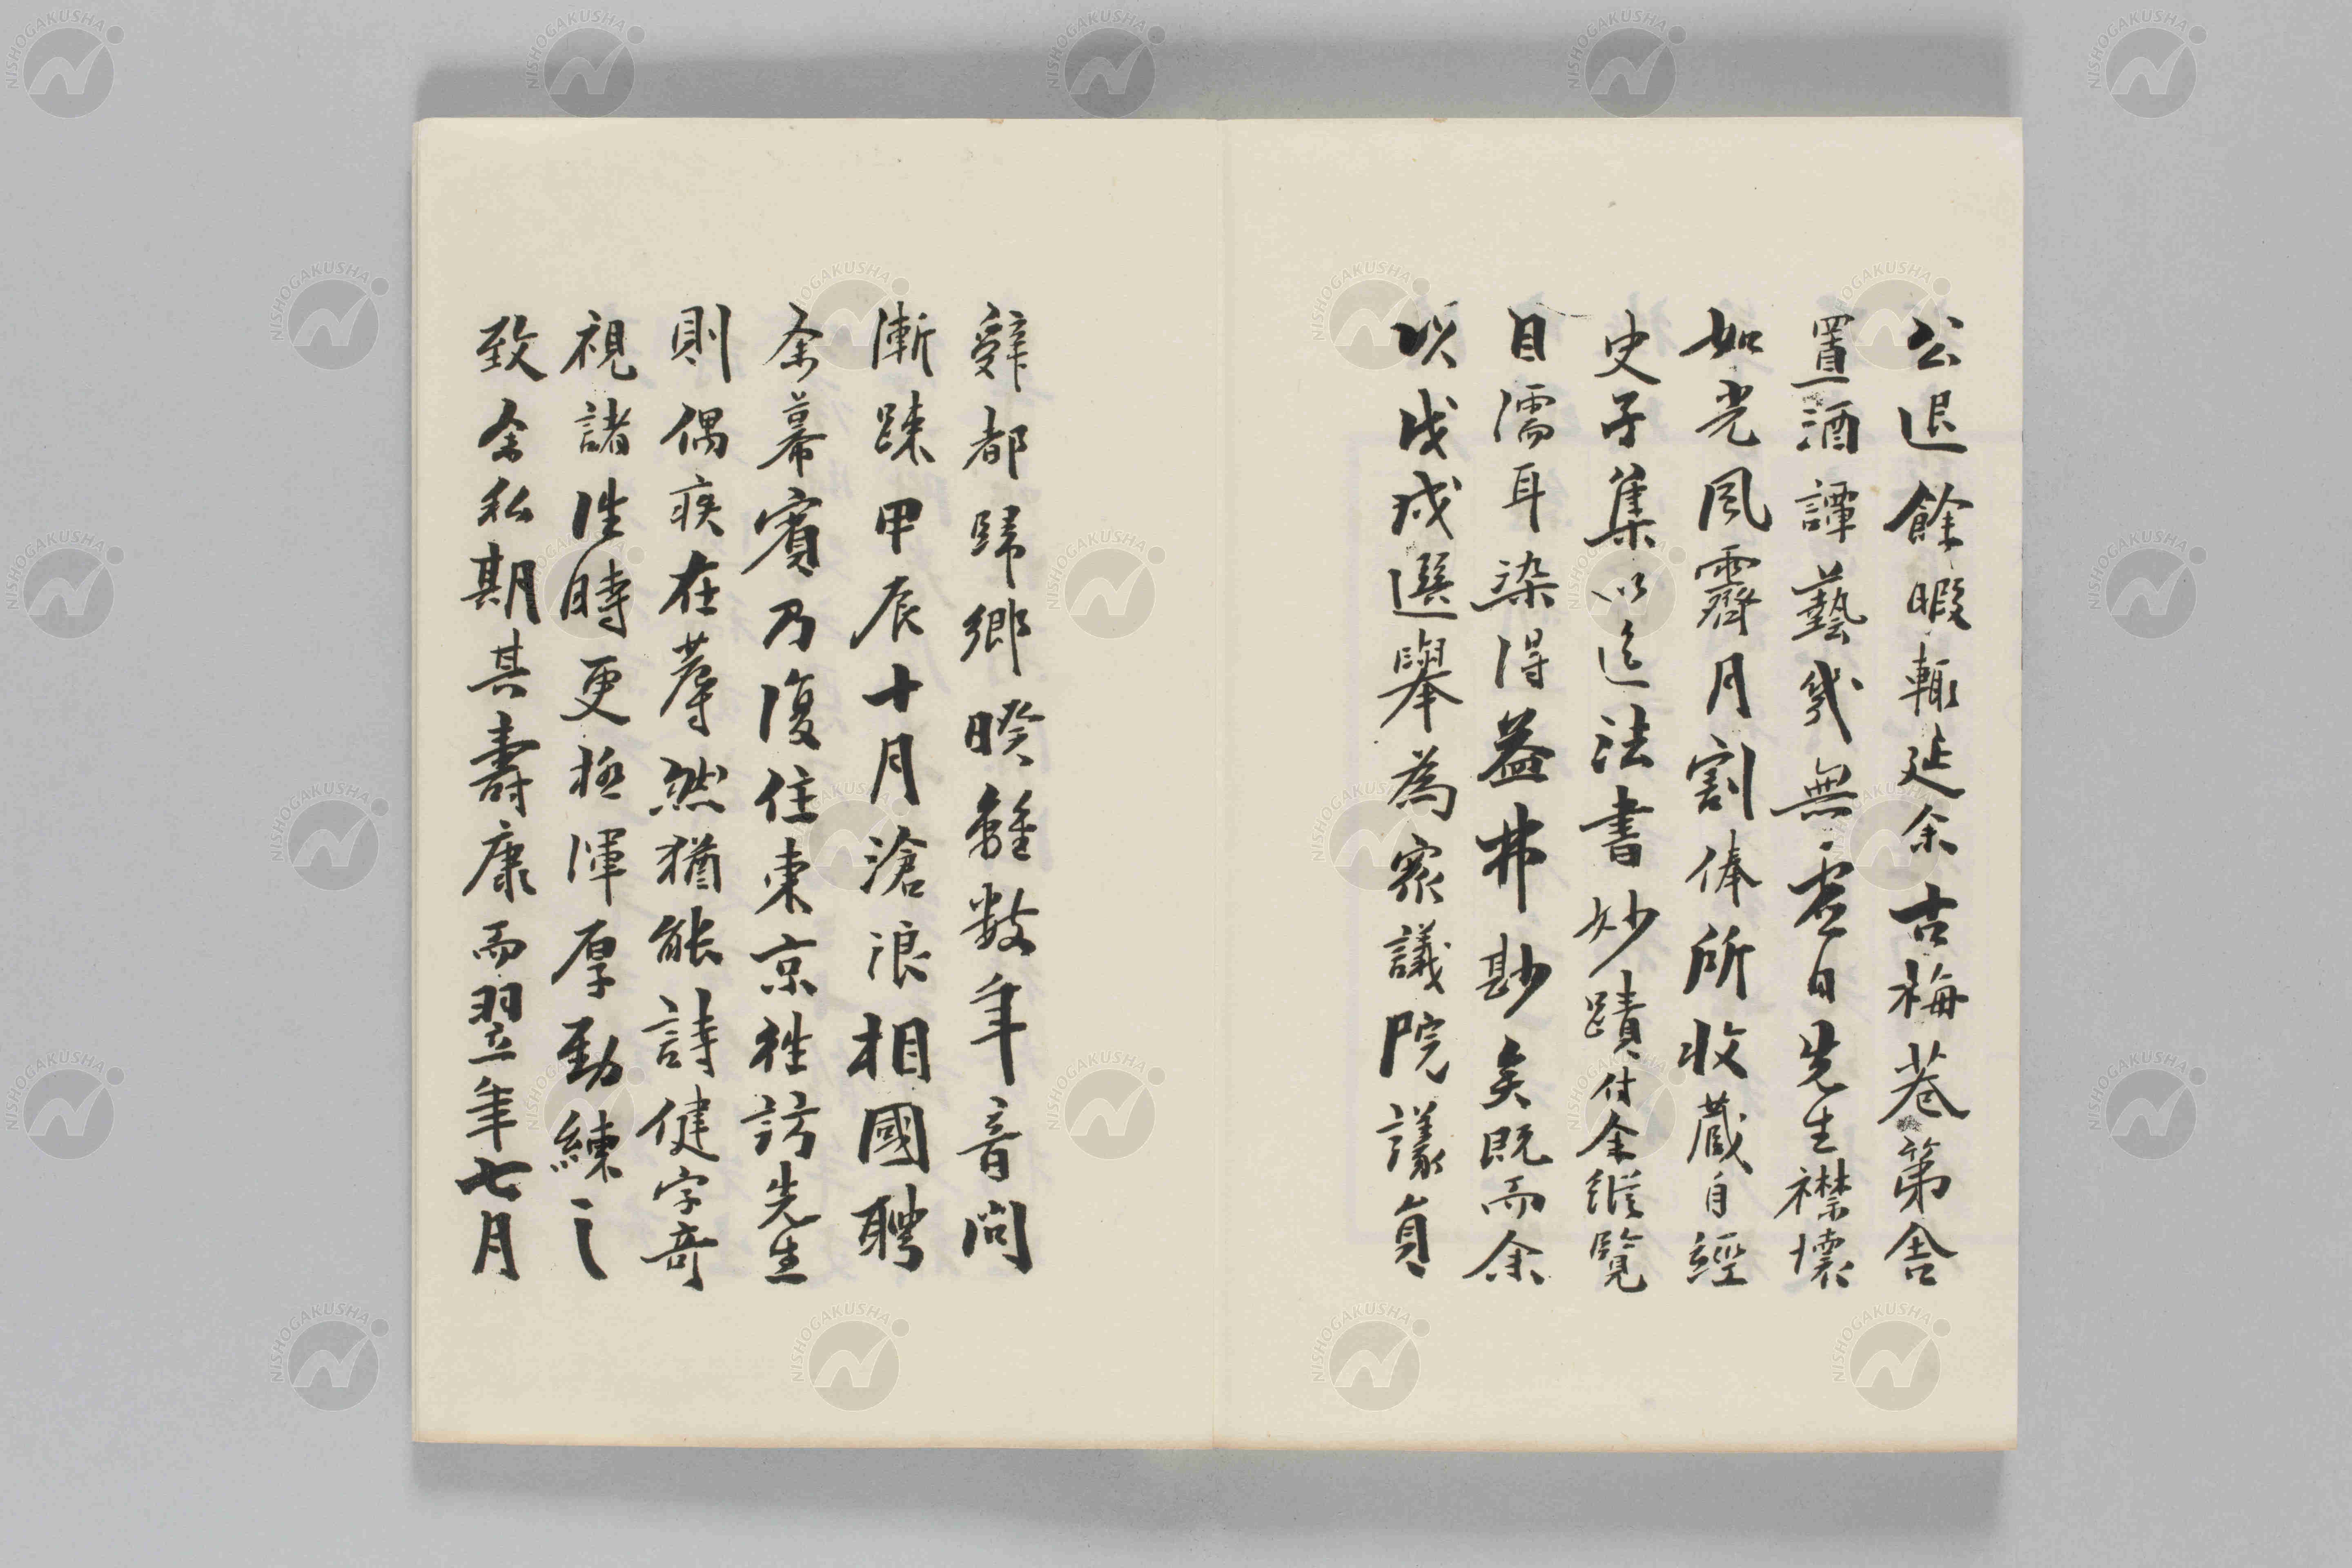 公退餘暇輙延余古梅巷第舍
置酒譚藝幾無虚日先生襟懐
如光風霽月割俸所收蔵自經
史子集以迄法書妙蹟付余縱覧
目濡耳染得益弗尠矣既而余
以戊戌選舉為衆議院議員
辤都歸郷暌離数年音問
漸踈甲辰十月滄浪相國聘
余幕賓乃復住東京徃訪先生
則偶疾在蓐然猶能詩健字竒
視諸徃時更極渾厚勁練之
致余私期其壽康而翌年七月
NISHOGAKUSHA